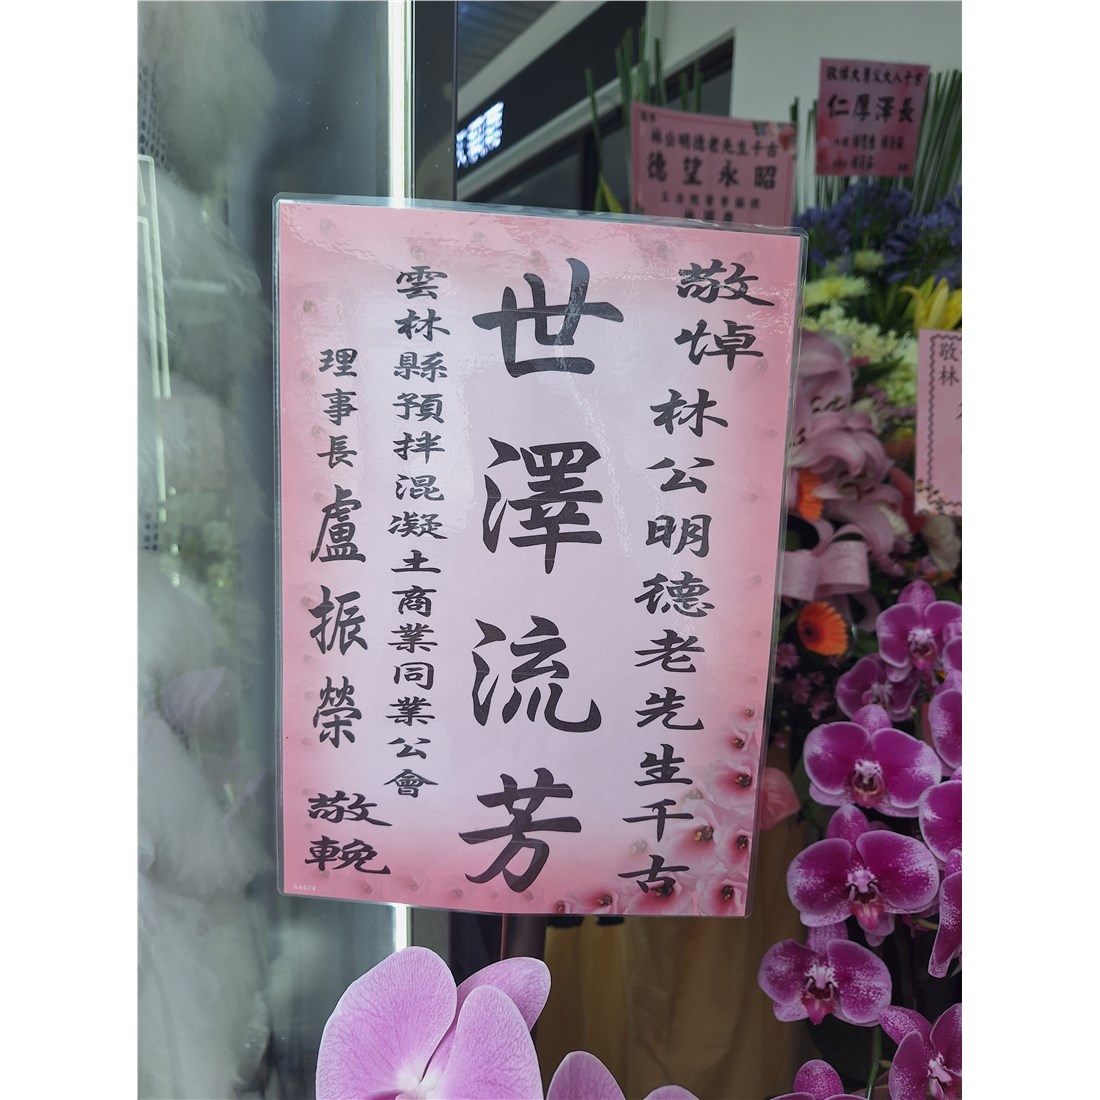 敬悼林公明德老先生千古
世澤流芳
雲林縣預拌混凝土商業同業公會
理事長盧振榮敬輓
林公明德老先生千古
德望永昭
仁厚澤長
敬
林